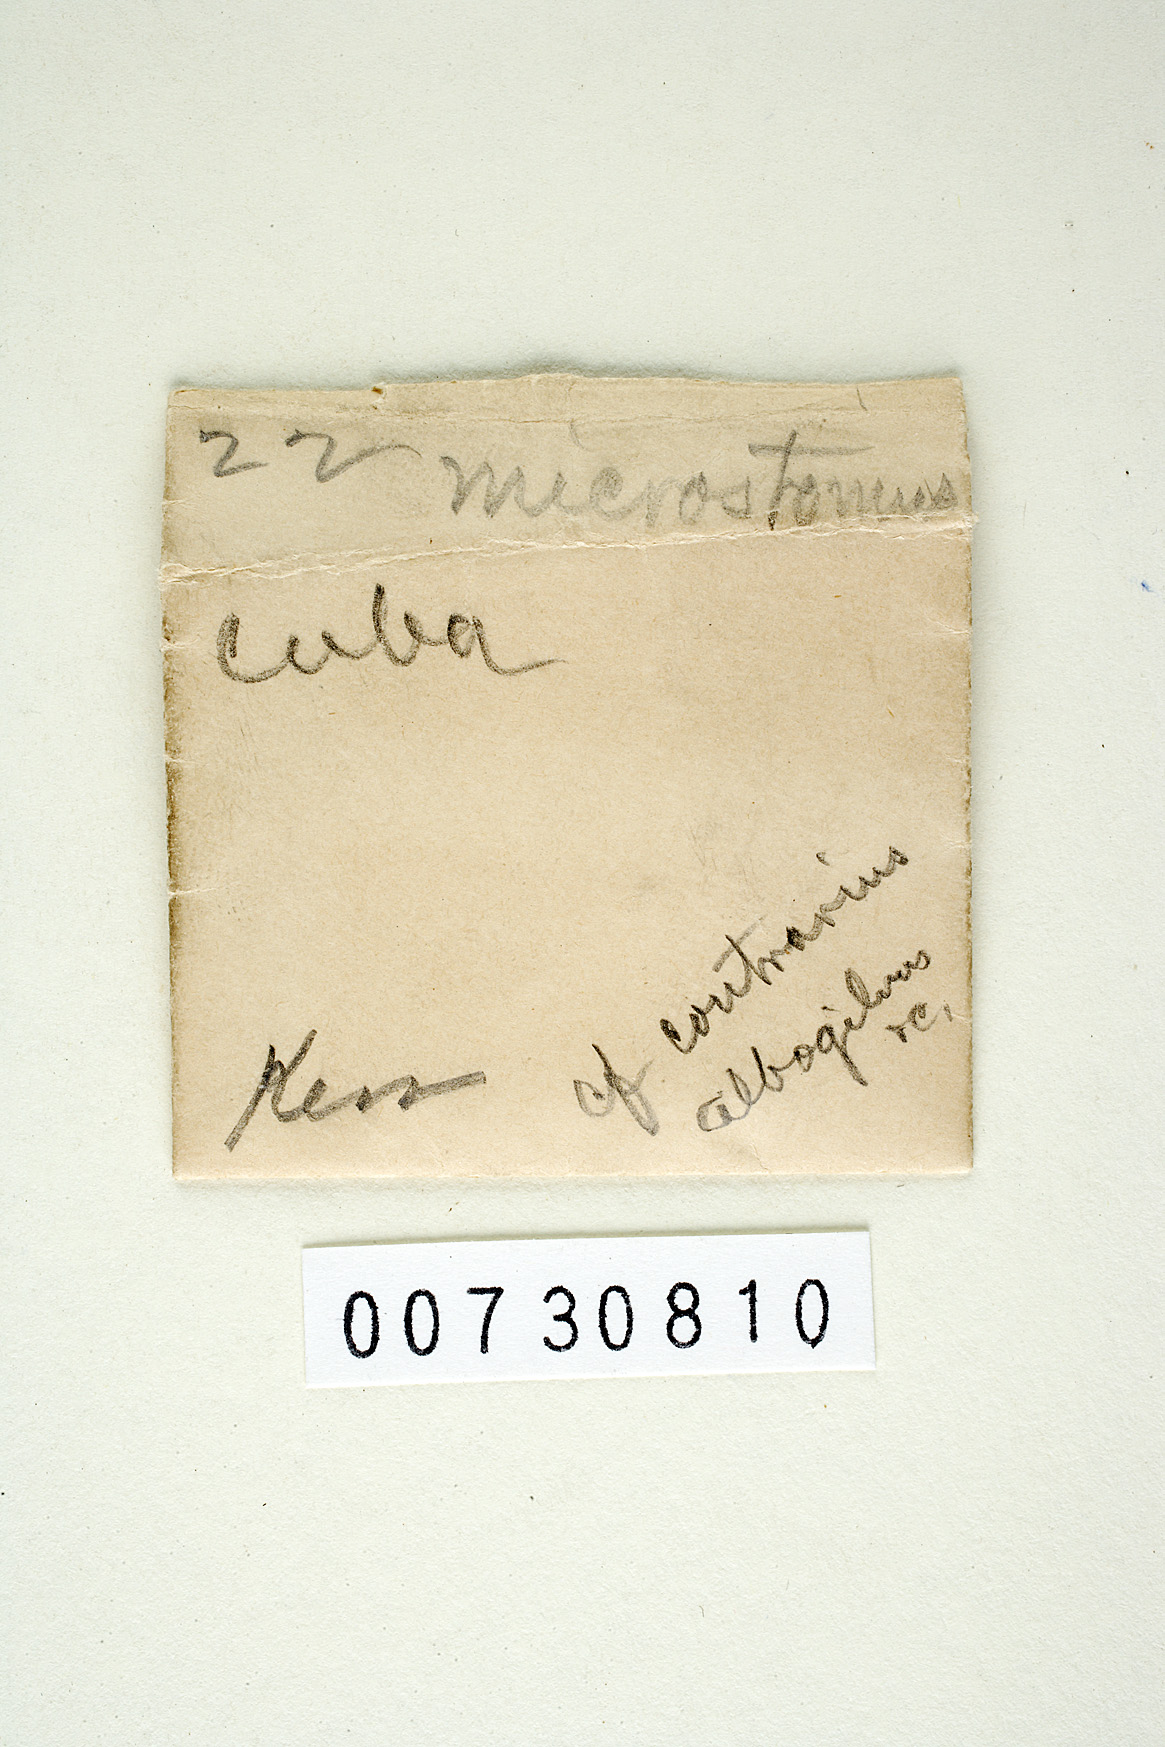 22 microstomus
Cuba
Kess
cf contrarius
albogilvus
&c.
00730810